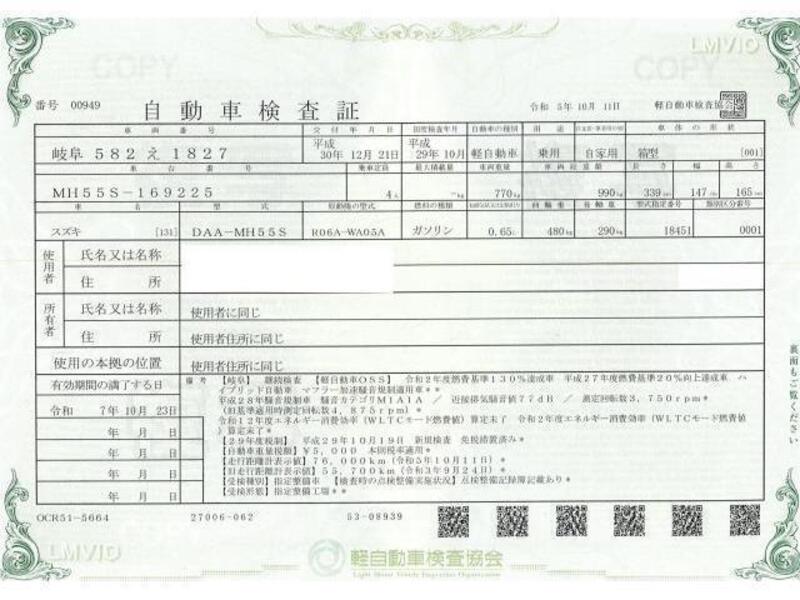 LMVIO
COPY
COPY
番号 00949
自動車検査証
令和 5年 10月 11日
軽自動車検査協会
車両番号
交付年月日
初度検査年月
自動車の種別
用途
自家用・事業用の別
車体の形状
岐阜 582 え 1827
平成 30年 12月 21日
平成 29年 10月
軽自動車
乗用
自家用
箱型 [001]
車台番号
乗車定員
最大積載量
車両重量
車両総重量
長さ
幅
高さ
MH55S-169225
4人
-kg
770kg
990kg
339cm
147cm
165cm
車名
型式
原動機の型式
燃料の種類
前軸重
後軸重
型式指定番号
類別区分番号
スズキ [131]
DAA-MH55S
R06A-WA05A
ガソリン
0.65L
480kg
290kg
18451
0001
使用者
氏名又は名称
住所
所有者
氏名又は名称
使用者に同じ
住所
使用者住所に同じ
使用の本拠の位置
使用者住所に同じ
有効期間の満了する日
令和 7年 10月 23日
年 月 日
年 月 日
年 月 日
年 月 日
備考
【岐阜】 継続検査 【軽自動車OSS】 令和2年度燃費基準130%達成車 平成27年度燃費基準20%向上達成車 ハ
イブリッド自動車 マフラー加速騒音規制適用車**
平成28年騒音規制車 騒音カテゴリM1A1A / 近接排気騒音値77dB / 測定回転数3,750rpm*
(旧基準適用時測定回転数4,875rpm)*
令和12年度エネルギー消費効率(WLTCモード燃費値)算定未了 令和2年度エネルギー消費効率(WLTCモード燃費値
)算定未了*
【29年度税制】 平成29年10月19日 新規検査 免税措置済み*
【自動車重量税額】¥5,000 本則税率適用*
【走行距離計表示値】76,000km(令和5年10月11日)*
【旧走行距離計表示値】55,700km(令和3年9月24日)*
【受検種別】指定整備車 【検査時の点検整備実施状況】点検整備記録簿記載あり*
【受検形態】指定整備工場**
裏面もご覧ください
OCR51-5664
27006-062
53-08939
LMVIO
軽自動車検査協会
Light Motor Vehicle Inspection Organization